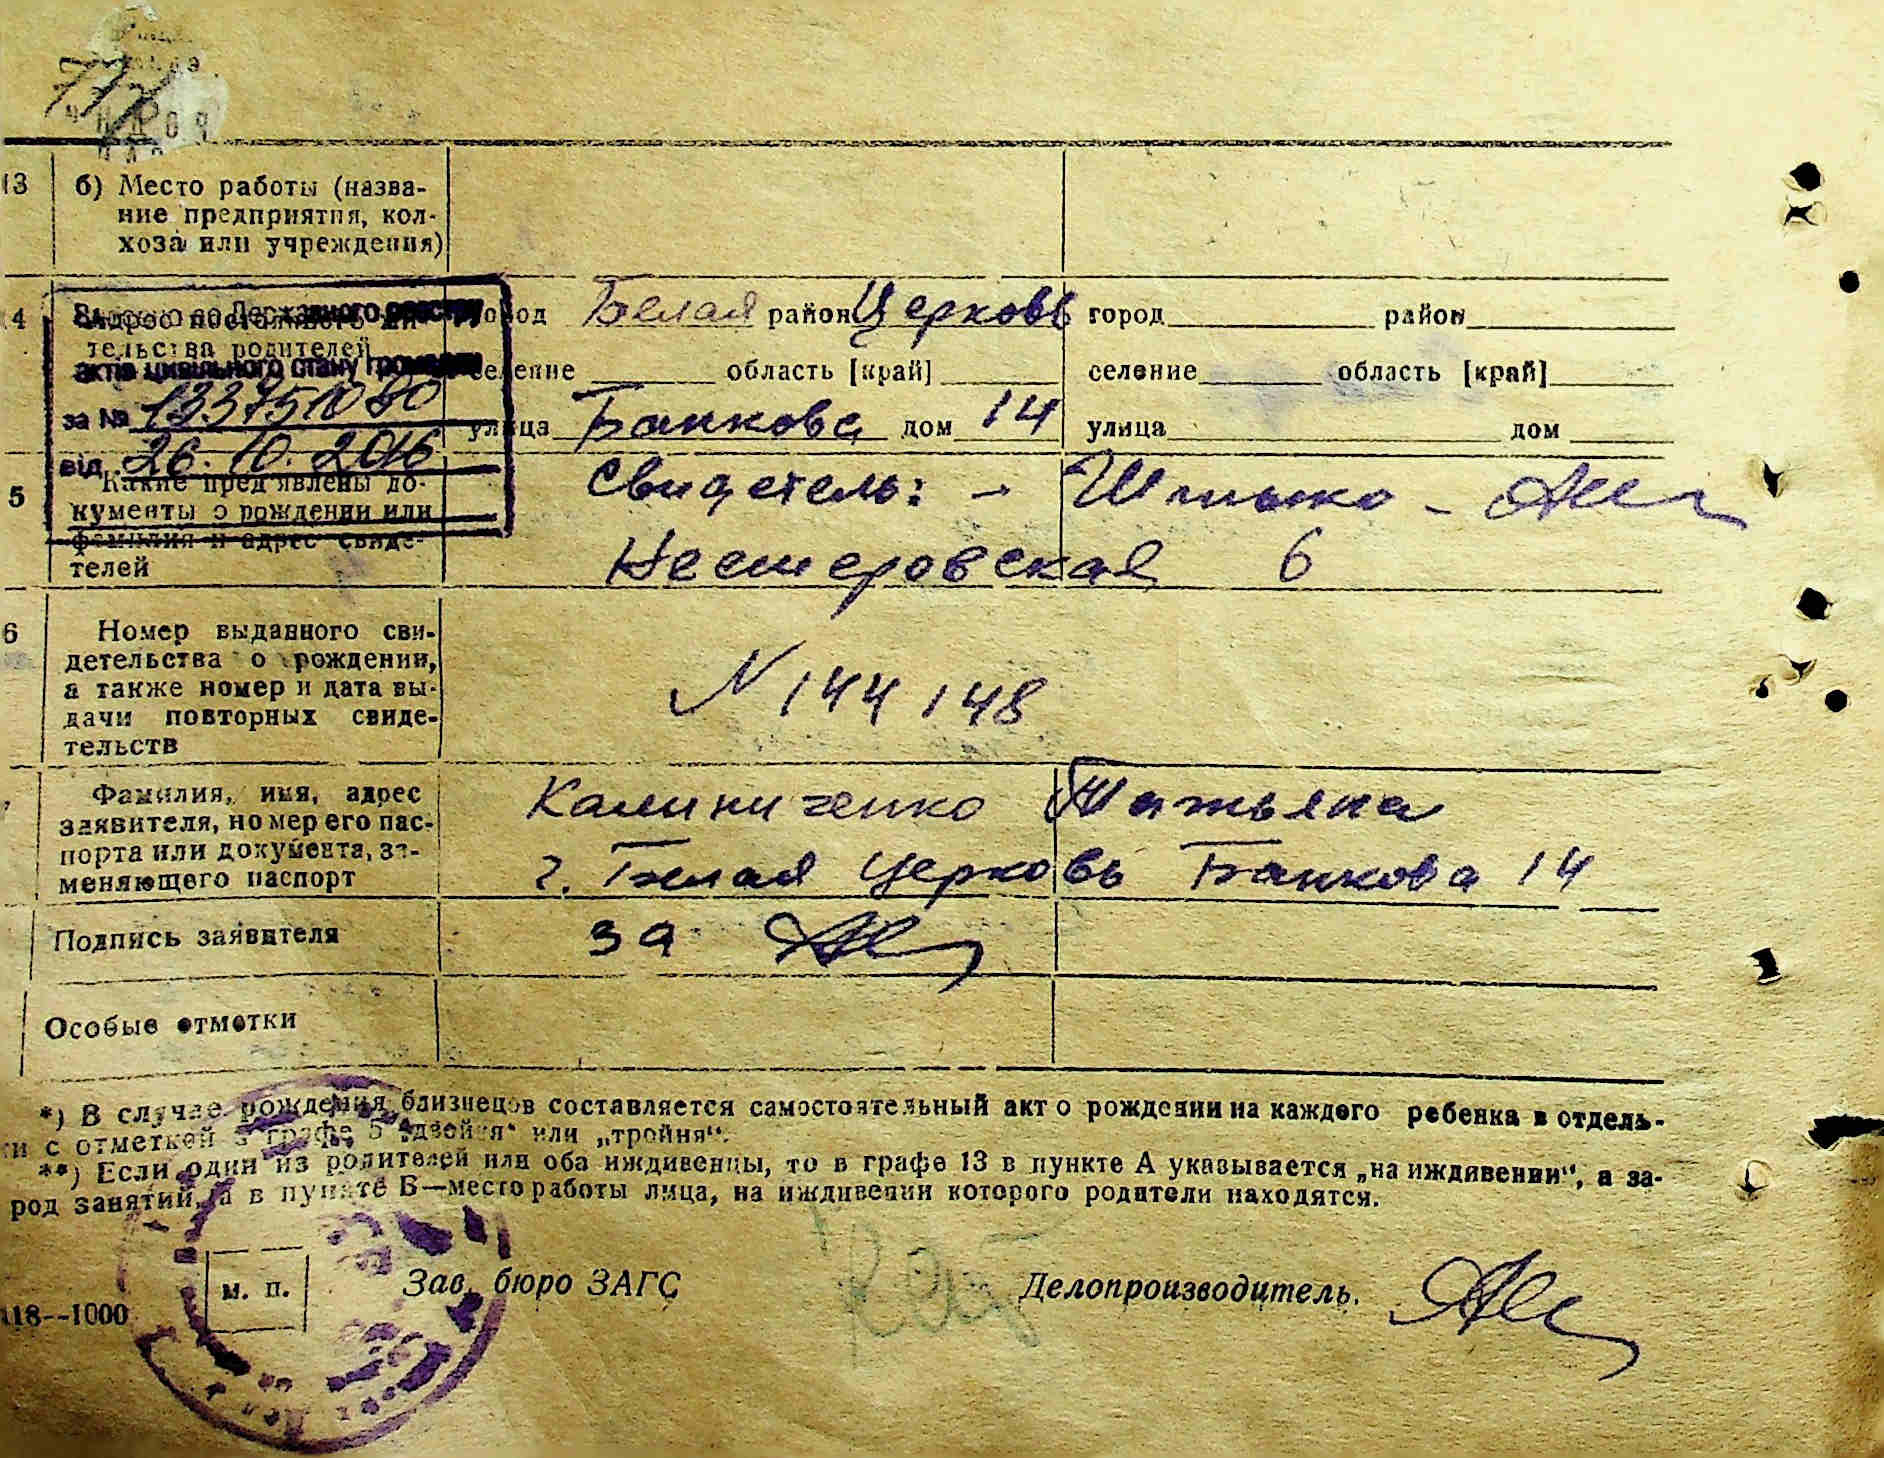 13 б) Место работы (назва-
ние предприятия, кол-
хоза или учреждения)
4 Адрес постоянного жи-
тельства родителей
город Белая район Церковь город район
селение область [край] селение область [край]
улица Банкова дом 14 улица дом
Внесено до Державного реєстру
актів цивільного стану громадян
за № 1337510 80
від 26. 10. 2016
5 Какие предъявлены до-
кументы о рождении или
фамилия и адрес свиде-
телей
Свидетель: -
Нестеровская 6
6 Номер выданного сви-
детельства о рождении,
а также номер и дата вы-
дачи повторных свиде-
тельств
N 144148
Фамилия, имя, адрес
заявителя, номер его пас-
порта или документа, за-
меняющего паспорт
Калиниченко Татьяна
г. Белая Церковь Банкова 14
Подпись заявителя
за
Особые отметки
*) В случае рождения близнецов составляется самостоятельный акт о рождении на каждого ребенка в отдель-
и с отметкой в графе 5 „двойня“ или „тройня“.
**) Если один из родителей или оба иждивенцы, то в графе 13 в пункте А указывается „на иждивении“, а за-
род занятий, а в пункте Б—место работы лица, на иждивении которого родители находятся.
м. п. Зав. бюро ЗАГС Делопроизводитель.
18--1000